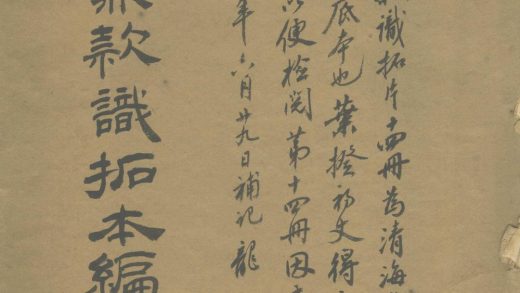 識拓片十四冊為清海
底本也葉揆初丈得
以便檢閱第十四冊因
年六月廿九日補記龍
款識拓本編